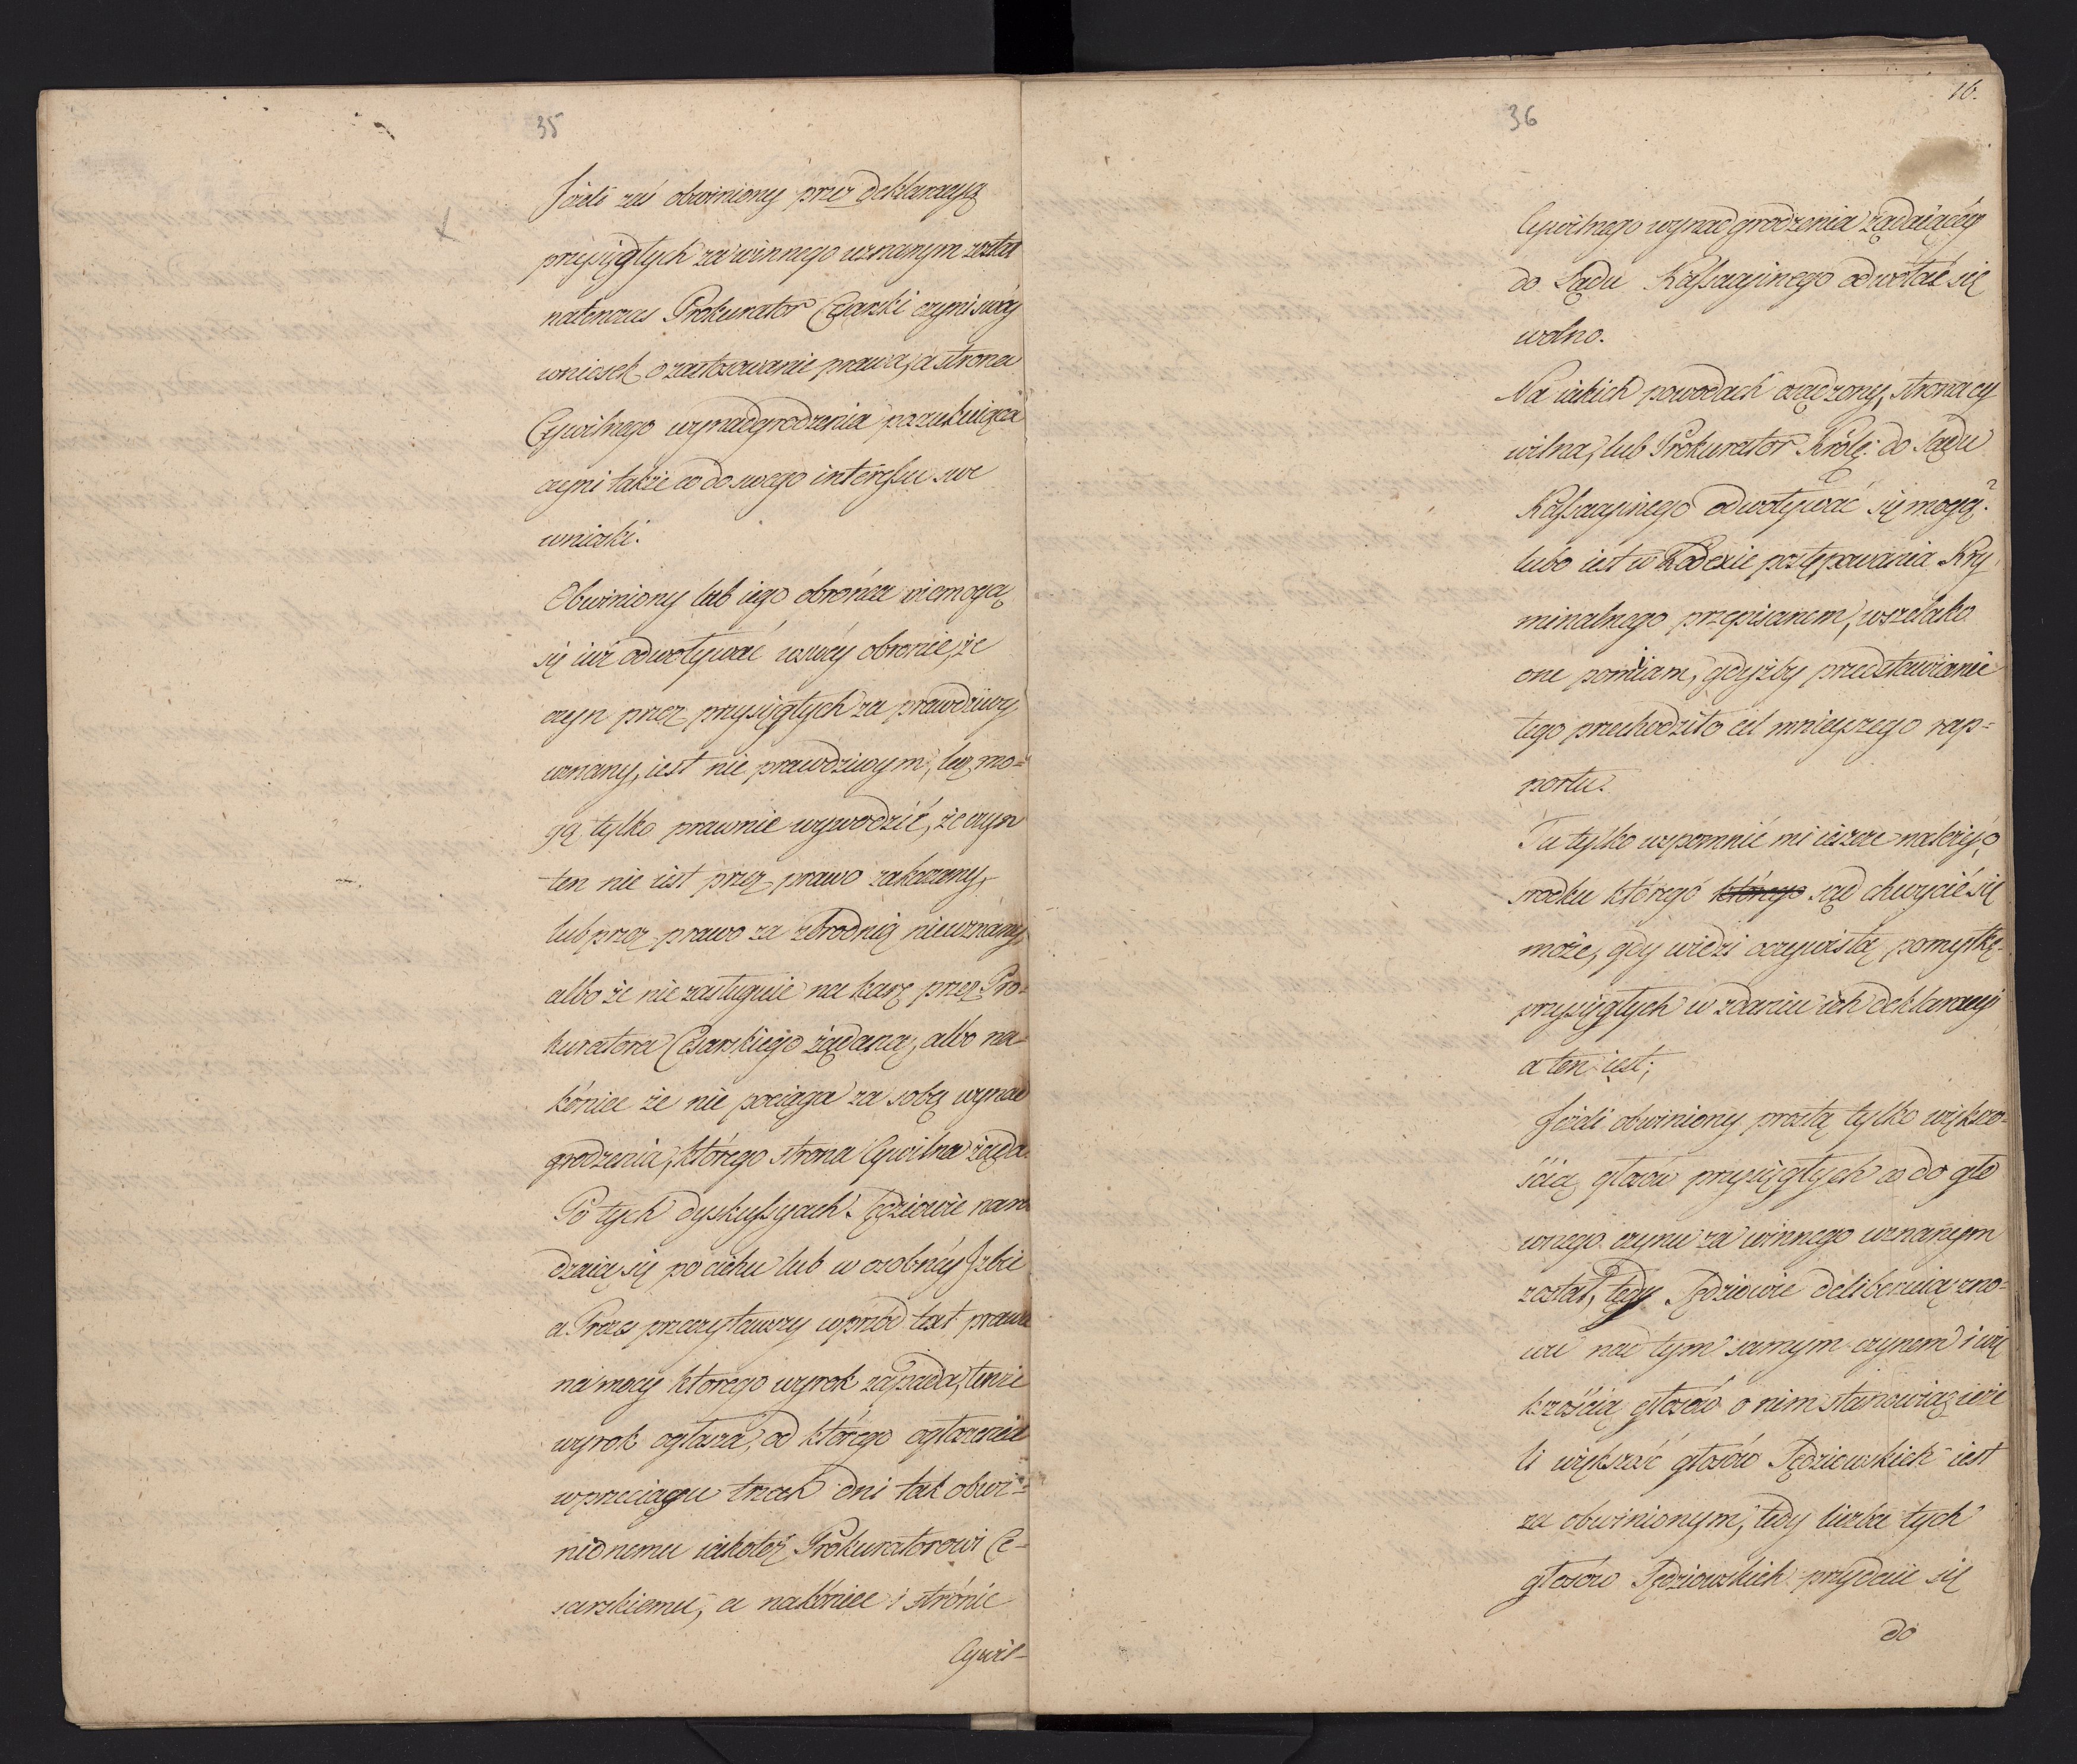 35
Jeżeli zaś obwiniony przez deklaracyą
przysięgłych za winnego uznanym został
natenczas Prokurator Cesarski czyni swóy
wniosek o zastosowanie prawa, a strona
Cywilnego wynadgrodzenia poszukuiąca
czyni także co do swego interessu swe
wnioski.
Obwiniony lub iego obrońca niemogą
się iuż odwoływać w swéy obronie, że
czyn przez przysięgłych za prawdziwy
uznany, iest nie prawdziwym, lecz mo=
gą tylko prawnie wywodzić, że czyn
ten nie iest przez prawo zakazany,
lub przez prawo za zbrodnią nieuznany,
albo że nie zasługuie na karę przez Pro=
kuratora Cesarskiego żądaną, albo na=
koniec że nie pociąga za sobą wynad
grodzenia, którego strona Cywilna żąda.
Po tych dyskussyach Sędziowie nara
dzaią się po cichu lub w osobnéy Izbie
a Prezes przeczytawszy wprzód text prawa
na mocy ktorego wyrok zapada, tenże
wyrok ogłasza, od którego ogłoszenia
w przeciągu trzech dni tak obwi=
nionemu iakoteż Prokuratorowi Ce=
sarskiemu, a nakoniec i stronie
Cywil=
16.
36
Cywilnego wynadgrodzenia żądaiącéy
do Sądu Kassacyinego odwołać się
wolno.
Na iakich powodach osądzony, strona cy
wilna, lub Prokurator Królę: do Sądu
Kassacyinego odwoływać się mogą?
lubo iest w Kodexie postępowania Kry
minalnego przepisanem, wszelako
one pomiiam, gdyżby przedstawianie
tego przechodziło cel mnieyszego rap=
portu.
Tu tylko wspomnić mi ieszcze należy, o
srodku którego którego sąd chwycić się
może, gdy widzi oczywistą pomyłkę
przysięgłych w zdaniu ich deklaracyi
a ten iest;
Jeżeli obwiniony prostą tylko większo=
ścią głosów przysięgłych co do głó
wnego czynu za winnego uznanym
został, tedy Sędziowie deliberuią zno=
wu nad tym samym czynem i wię
kszością głosów o nim stanowią, ieże
li większość głosów Sędziowskich iest
za obwinionym, tedy liczba tych
głosów Sędziowskich przydaie się
do